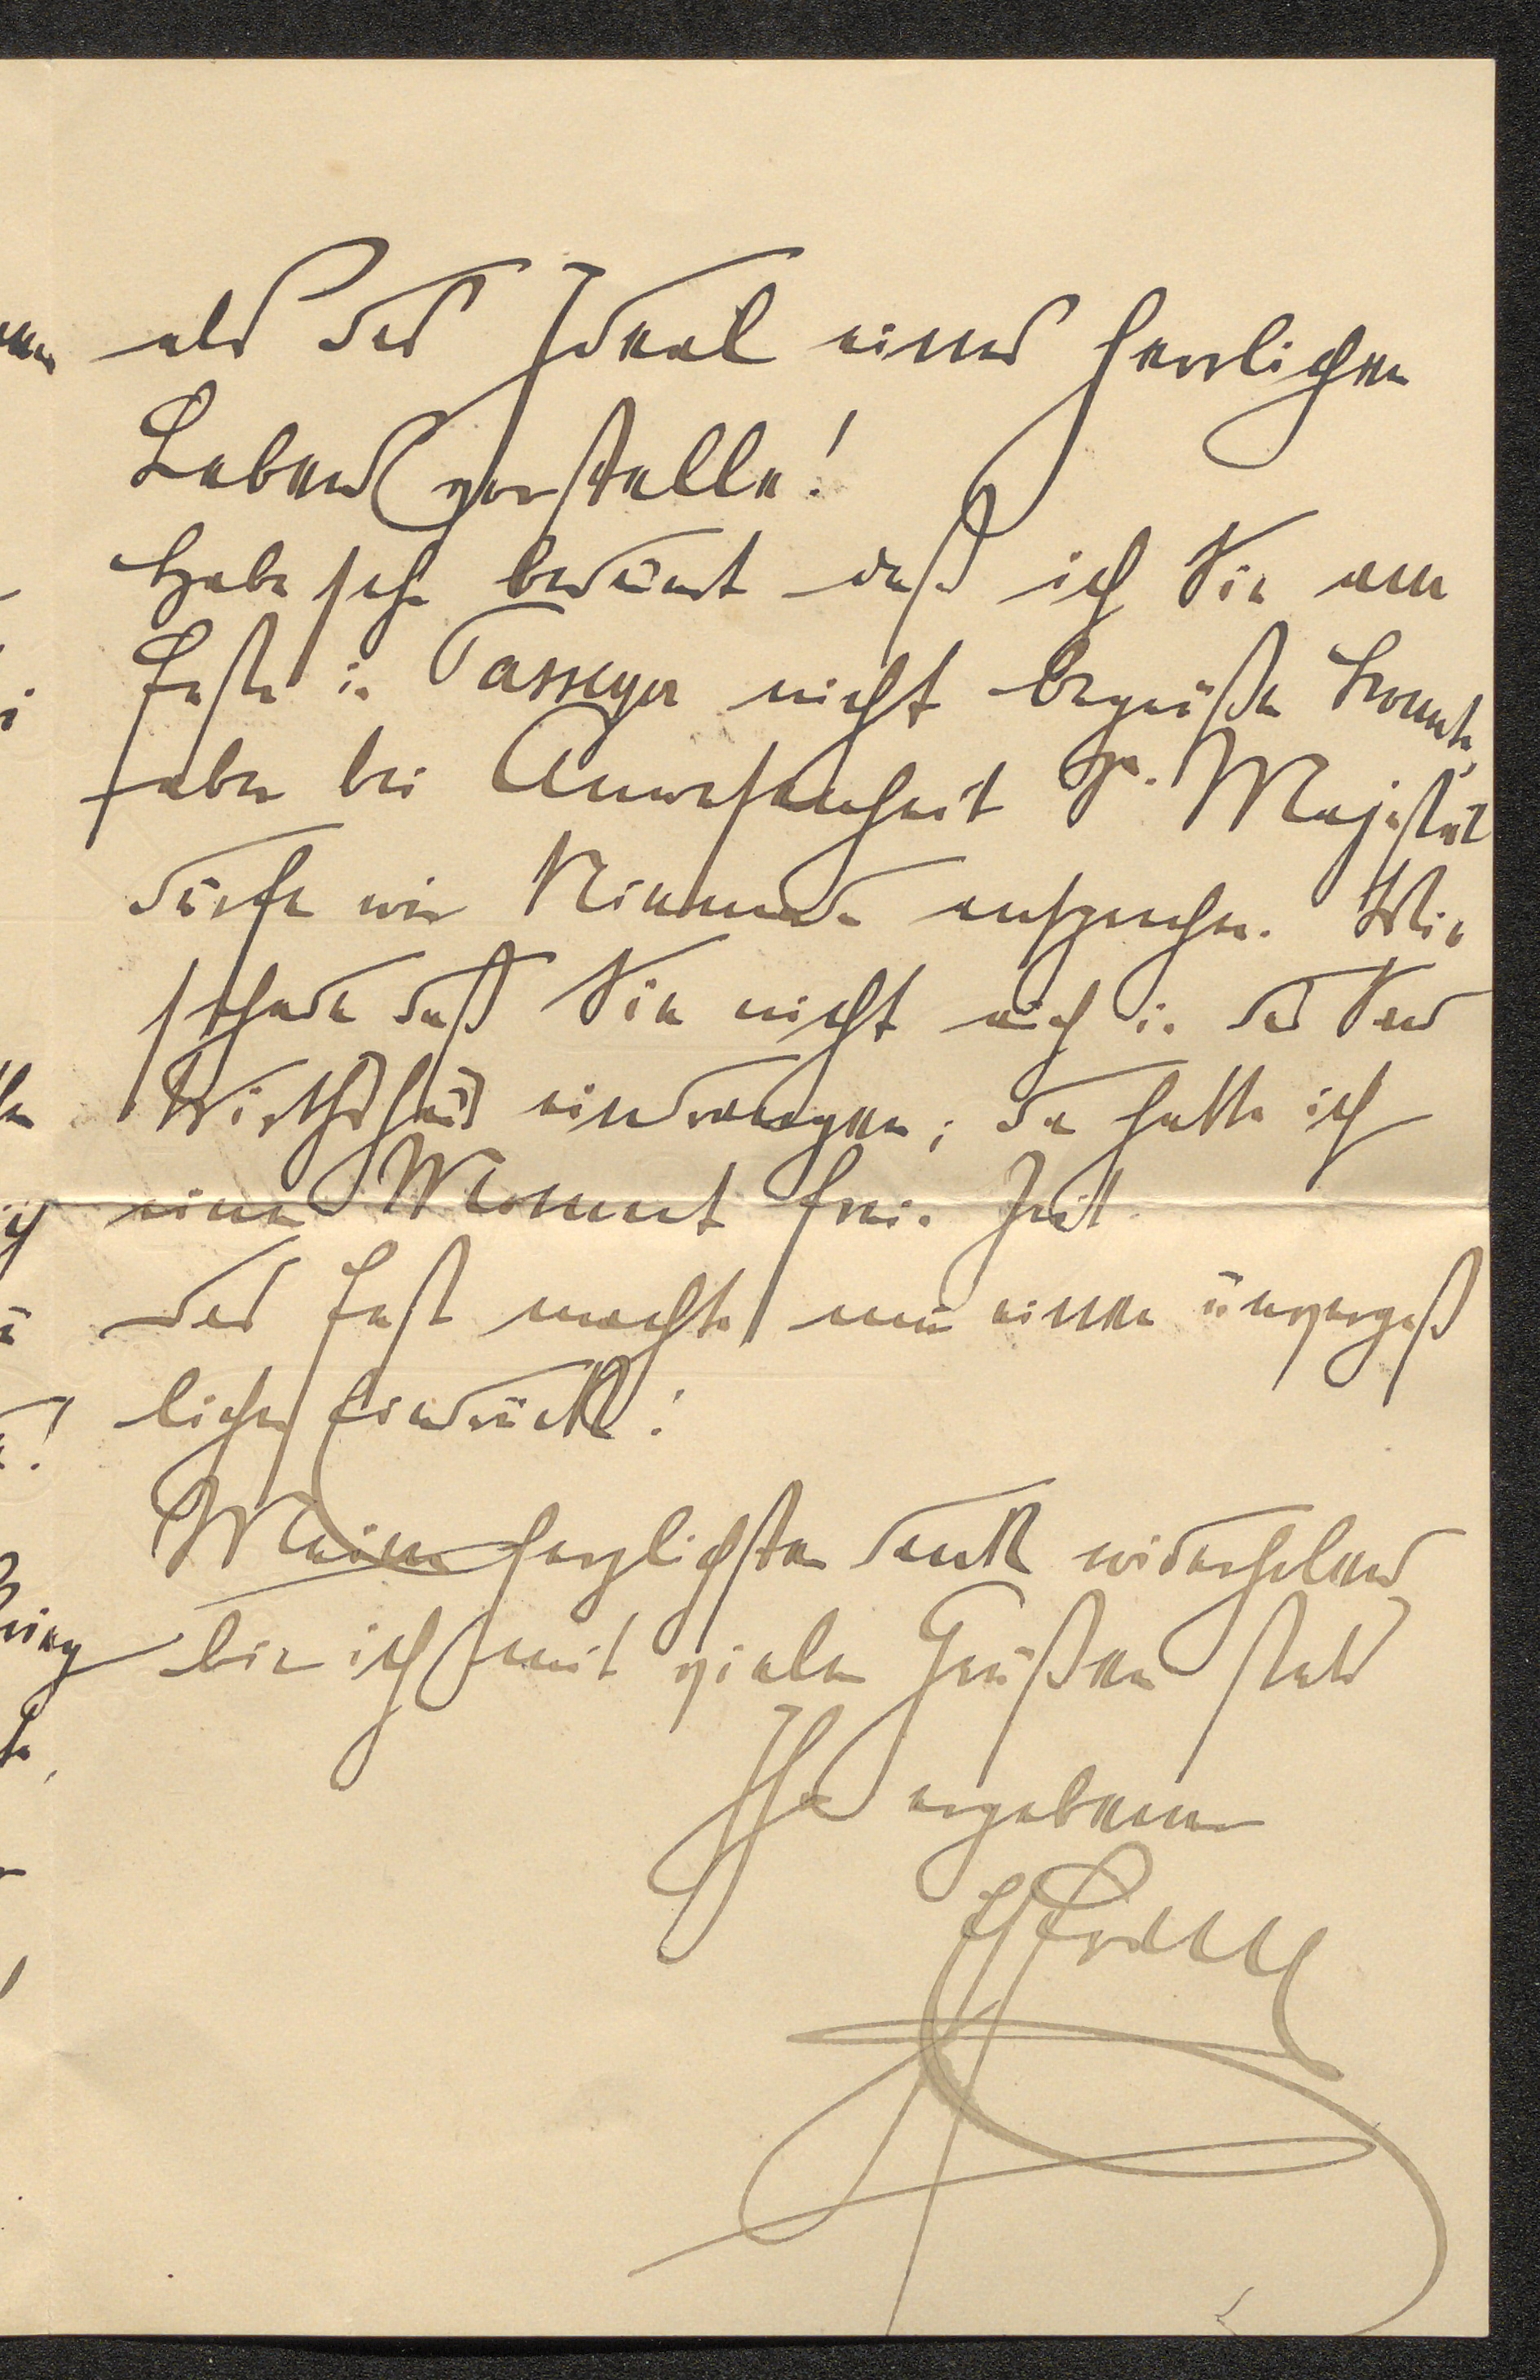 als das Ideal eines herrlichen
Lebens vorstelle!
Habe sehr bedauert daß ich Sie am
Feste in Passeyer nicht begrüßen konnte,
aber bei Anwesenheit Sr. Majestät
dürfen wir Niemanden aufsuchen. Wie
schade daß Sie nicht auch in das Sand
Wirthshaus eindrangen; da hatte ich
einen Moment freie Zeit.
Das Fest machte mir einen unvergeß
lichen Eindruck!
Meinen herzlichsten Dank wiederholend
bin ich mit vielen Grüßen stets
Ihr ergebener